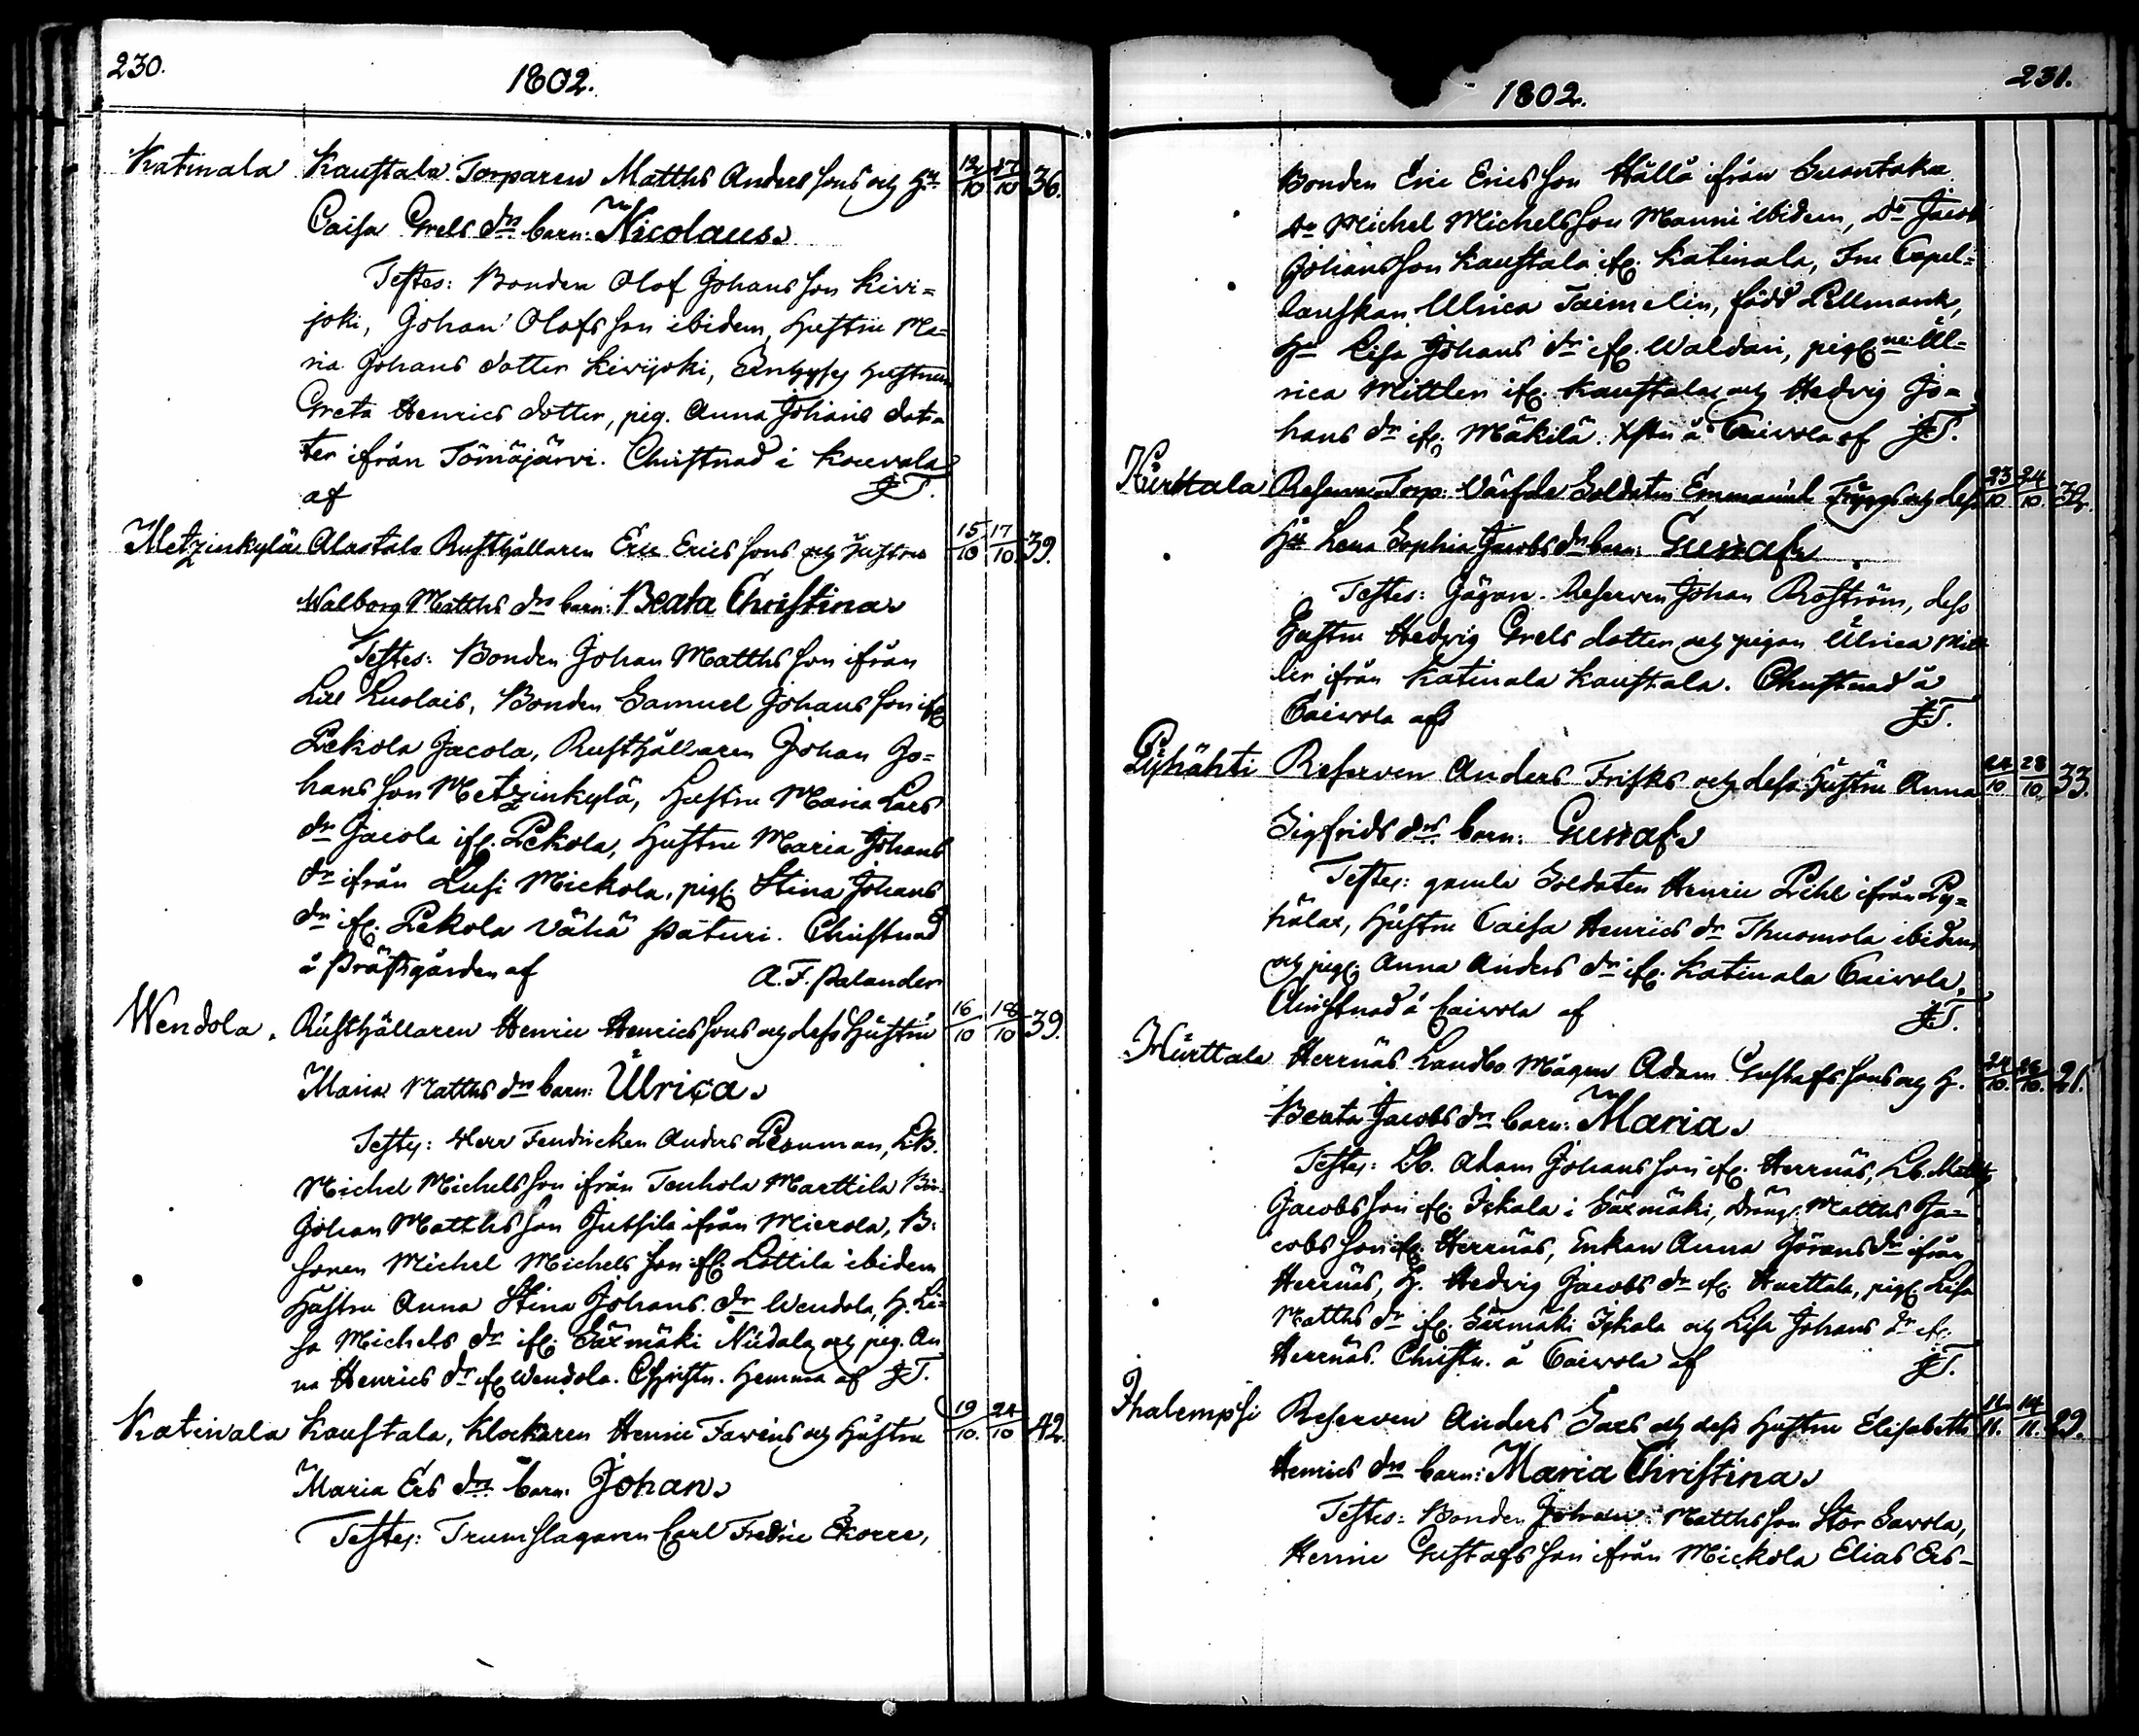 230.
1802.
Katinala Kaustala Torparen Matths Anders sons och Hu 12/10 17/10 36.
Caisa Grels drs barn: Nicolaus
Testes: Bonden Olof Johans son Kivi=
joki, Johan Olofs son ibidem, Hustru Ma=
ria Johans dotter Kivijoki, hustrun
Greta Henrics dotter, pig. Anna Johans dot=
ter ifrån Tömäjärvi. Christnad i Kouvala
af JT.
Metzinkylä Alastalo Rusthållaren Eric Erics sons och Hustru 15/10 17/10 39.
Walborg Matths drs barn: Beata Christina
Testes: Bonden Johan Matths son ifrån
Lill Luolais, Bonden Samuel Johans son ifr.
Pekola Jacola, Rusthållaren Johan Jo=
hans son Metzinkylä, Hustru Maria Lars
dr Jacola ifr. Pekola, Hustru Maria Johans
dr ifrån Lusi Mickola, pig. Stina Johans
dr ifr. Pekola Vähä Paturi. Christnad
å Prästgården af A. F. Palander
Wendola. Rusthållaren Henric Henrics sons och dess Hustru 16/10 18/10 39.
Maria Matths drs barn: Ulrica
Testes: Herr Fendricken Anders Peruman, LB.
Michel Michels son ifrån Tenhola Marttila
Johan Matths son Jutsila ifrån Mierola, B:
sonen Michel Michels son ifr. Lottila ibidem
Hustru Anna Stina Johans dr Wendola, H. Li=
sa Michels dr ifr. Säxmäki Nidala och pig. An
na Henrics dr ifr. Wendola. Christn. hemma af JT.
Katinala Kaustala, Klockaren Henric Favens och Hustru 19/10. 24/10 42.
Maria Ers drs barn. Johan
Testes: Trumslagaren Carl Fredric Ekorre,
1802.
231.
Bonden Eric Erics son Hällä ifrån Suontaka
Do Michel Michels son Manni ibidem, Do Jacob
Johans son Kaustala ifr. Katinala, Fru Capel=
lanskan Ulrica Taimelin, född Pellmank,
Hu Lisa Johans dr ifr. Waldari, pigne Ul=
rica Mittler ifr. Kaustala och Hedvig Jo=
hans dr ifr. Mäkilä. Xstn å Caivola af JT.
Hurttala Reserve Torp. Värfde Soldaten Emmanuel och dess 23/10 24/10 32.
Hu Lena Sophia Jacobs drs barn: Gustaf
Testes: Reserven Johan Roström, dess
Hustru Hedvig Grels dotter och pigan Ulrica Mitt
ler ifrån Katinala Kaustala. Christnad å
Caivola af JT.
Pyhähti Reserven Anders Frisks och dess Hustru Anna 24/10 28/10 33.
Sigfrids drs barn: Gustaf
Testes: gamle Soldaten Henric Pihl ifrån Py=
hälax, Hustru Caisa Henrics dr Thuomola ibidem
och pig. Anna Anders dr ifr. Katinala Caivola,
Christnad å Caivola af JT.
Hurttala Herrnäs Landbo Mågen Adam Gustafs sons och H. 24/10. 26/10. 21.
Beata Jacobs drs barn: Maria
Testes: Lb. Adam Johans son ifr. Herrnäs, Lb. Matths
Jacobs son ifr. Ickala i Säxmäki, dräng. Matths Ja=
cobs son ifr. Herrnäs, Enkan Anna Görans dr ifrån
Herrnäs, H. Hedvig Jacobs dr ifr. Hurttala, pig. Lisa
Matths dr ifr. Säxmäki Ickala och Lisa Johans dr ifr.
Herrnäs. Christn. å Caivola af JT.
Ihalempsi Reserven Anders Sars och dess Hustru Elisabeth 11/11. 14/11. 29.
Henrics drs barn: Maria Christina
Testes: Bonden Johan Matths son Stor Savola,
Henric Gustafs son ifrån Mickola Elias Ers=